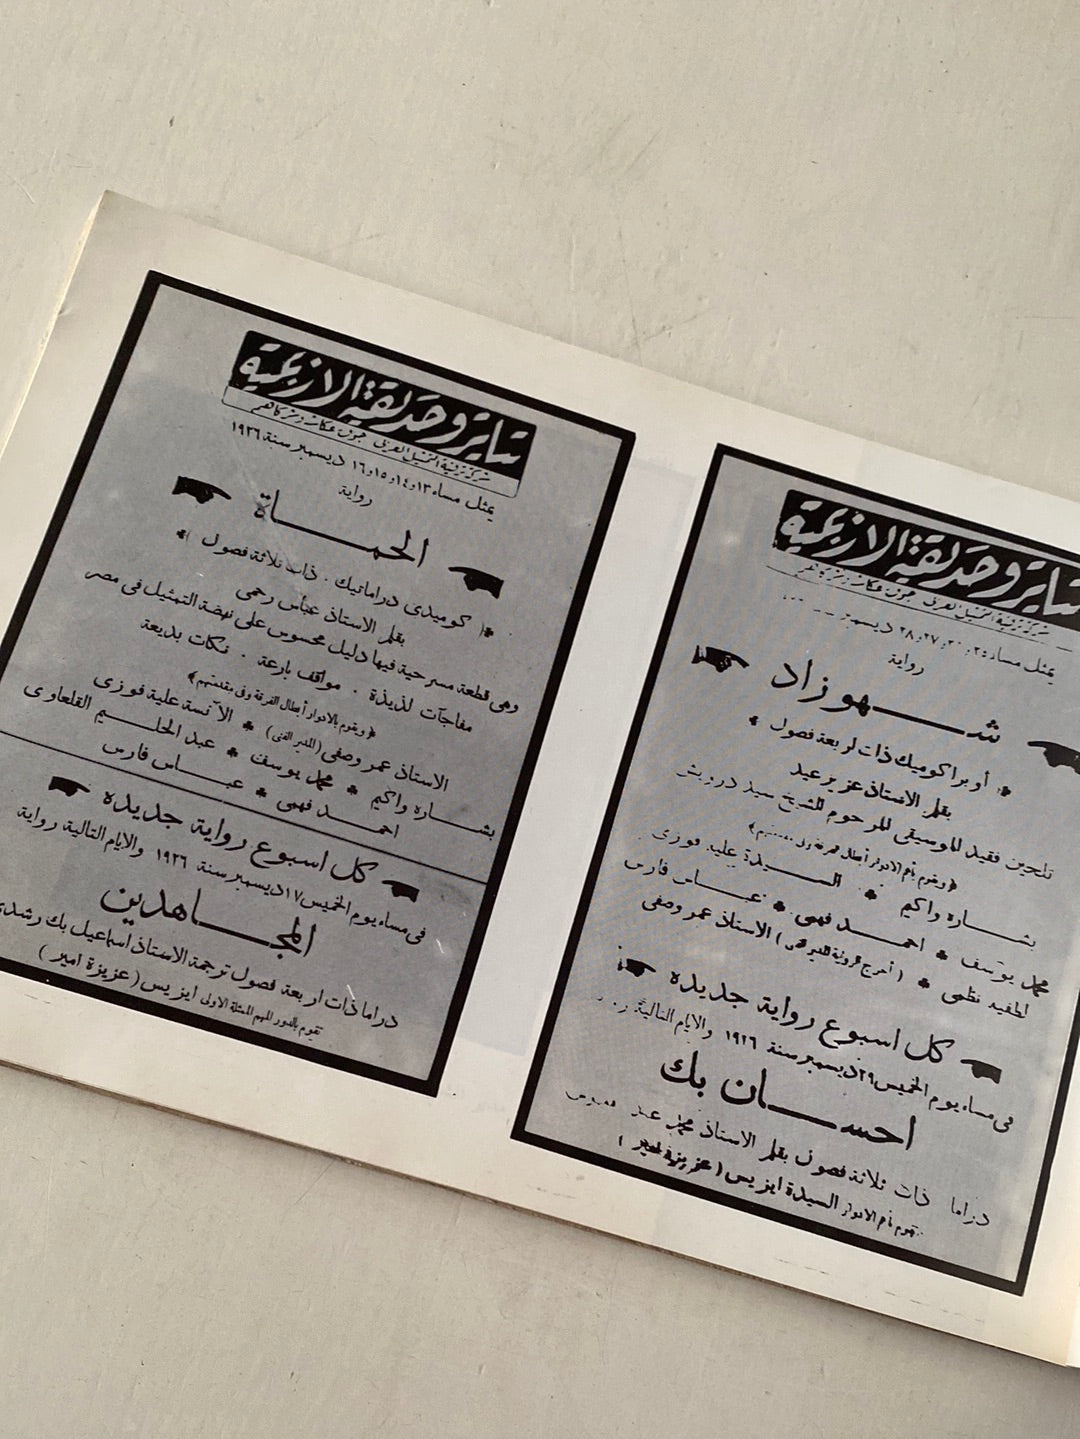 تياترو حديقة الازبكية
شركة ترقية التمثيل العربى جوق عكاشه وشركاهم
يمثل مساء ١٣ و ١٤ و ١٥ و ١٦ ديسمبر سنة ١٩٢٦
رواية
الحمـــاة
كوميدى دراماتيك . ذات ثلاثة فصول
بقلم الاستاذ عباس رحمى
وهى قطعة مسرحية فيها دليل محسوس على نهضة التمثيل فى مصر
مفاجآت لذيذة . مواقف بارعة . نكات بديعة
ويقوم بالادوار أبطال الفرقة وفى مقدمتهم
الاستاذ عمر وصفى (المدير الفنى) الآنسة علية فوزى
بشـــاره واكيم محمد يوسف عبد الحلـــيم القلعاوى
احمـــد فهمى عبـــاس فارس
كل اسبوع رواية جديده
فى مساء يوم الخميس ١٧ ديسمبر سنة ١٩٢٦ والايام التالية رواية
المجـــاهدين
دراما ذات اربعة فصول ترجمة الاستاذ اسماعيل بك رشدى
تقوم بالدور المهم الممثلة الاولى ايزيس (عزيزة امير)
تياترو حديقة الازبكية
شركة ترقية التمثيل العربى جوق عكاشه وشركاهم
يمثل مساء ٢٧ و ٢٨ ديسمبر
رواية
شـــهوزاد
أوبرا كوميك ذات اربعة فصول
بقلم الاستاذ عزيز عيد
تلحين فقيد الموسيقى المرحوم الشيخ سيد درويش
ويقوم بأهم الادوار أبطال الفرقة وفى مقدمتهم
بشـــاره واكيم الســـيدة علية فوزى
محمد يوسف احمـــد فهمى عبـــاس فارس
لطفيه نظمى الاستاذ عمر وصفى
كل اسبوع رواية جديده
فى مساء يوم الخميس ٢٩ ديسمبر سنة ١٩٢٦ والايام التالية
احســـان بك
دراما ذات ثلاثة فصول بقلم الاستاذ محمد عبد
تقوم بأهم الادوار السيدة ايزيس (عزيزة امير)